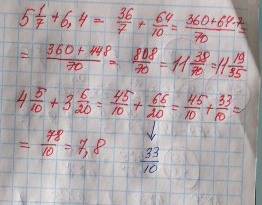 5 1/7 + 6,4 = 36/7 + 64/10 = (360+64·7)/70 =
= (360 + 448)/70 = 808/70 = 11 38/70 = 11 19/35
4 5/10 + 3 6/20 = 45/10 + 66/20 = 45/10 + 33/10 =
= 78/10 = 7,8
↓
33/10